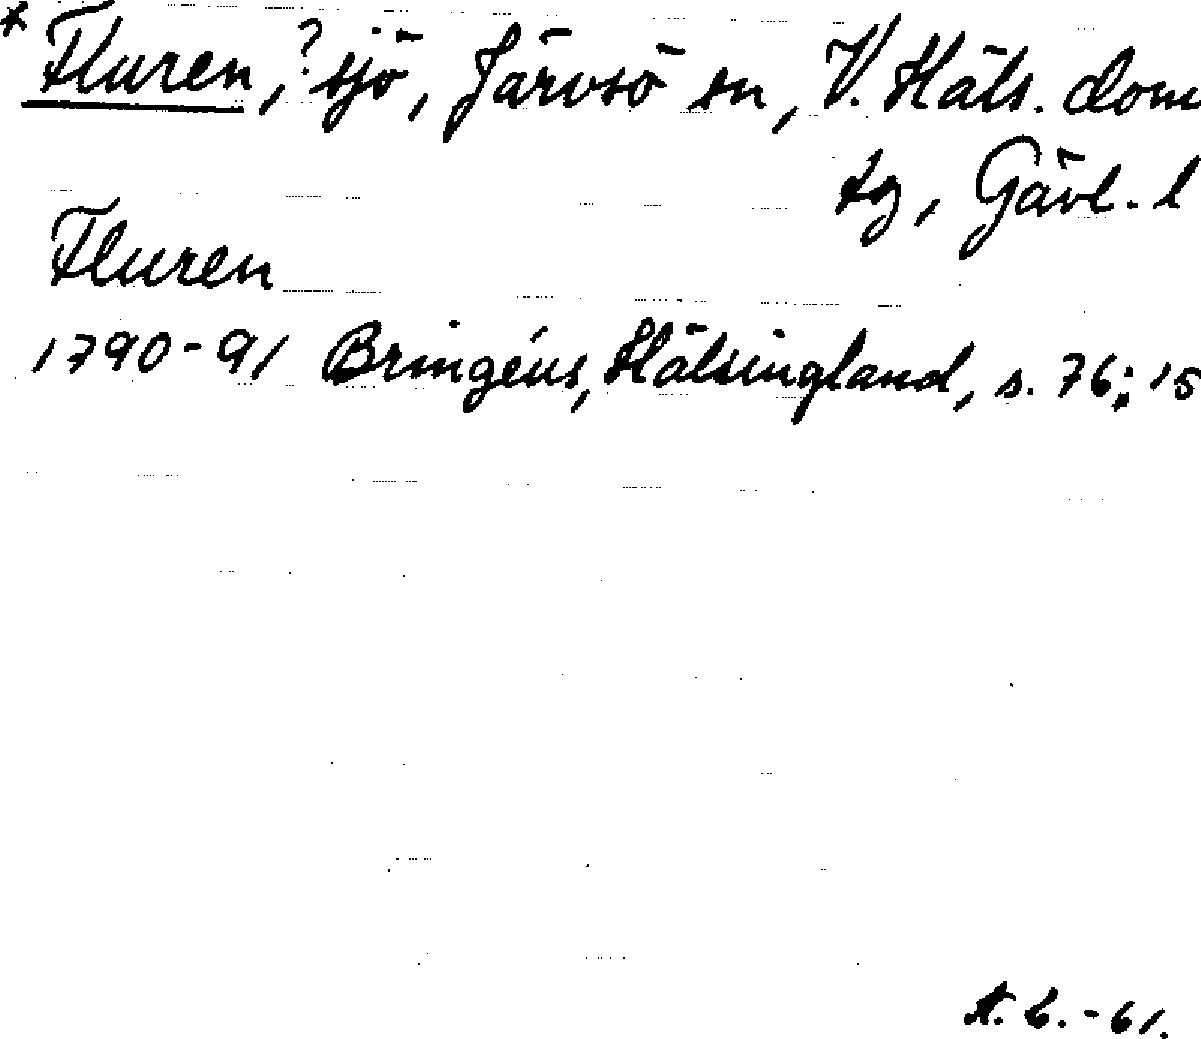 * Fluren, ? sjö, Järvsö sn, V. Häls. dom
sg, Gävl. l
Fluren
1790-91 Bringéus, Hälsingland, s. 76; 15
A. B. -61.